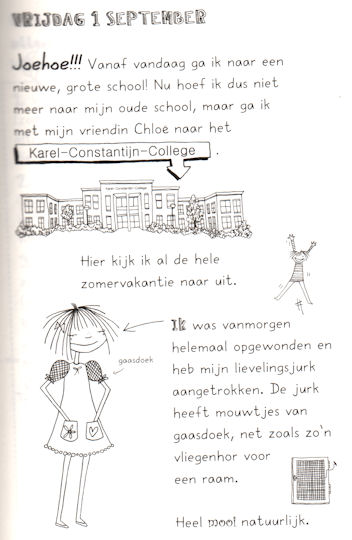 VRIJDAG 1 SEPTEMBER
Joehoe!!! Vanaf vandaag ga ik naar een
nieuwe, grote school! Nu hoef ik dus niet
meer naar mijn oude school, maar ga ik
met mijn vriendin Chloe naar het
Karel-Constantijn-College .
Karel-Constantijn-College
Hier kijk ik al de hele
zomervakantie naar uit.
Ik was vanmorgen
helemaal opgewonden en
gaasdoek
heb mijn lievelingsjurk
aangetrokken. De jurk
heeft mouwtjes van
gaasdoek, net zoals zo'n
vliegenhor voor
een raam.
Heel mooi natuurlijk.